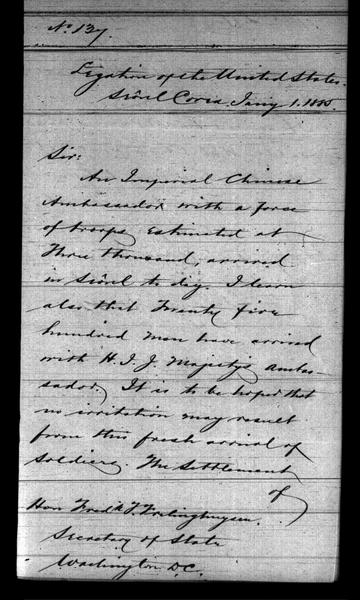 No. 137.
Legation of the United States.
Sëoul Corea, Jany 1. 1885.
Sir:
An Imperial Chinese
Ambassador with a force
of troops estimated at
three thousand, arrived
in Sëoul to day. I learn
also that twenty five
hundred men have arrived
with H. I. J. Majesty's ambas-
sador. It is to be hoped that
no irritation may result
from this fresh arrival of
soldiers. The settlement
of
Hon Fredk T. Frelinghuysen.
Secretary of State
Washington D.C.